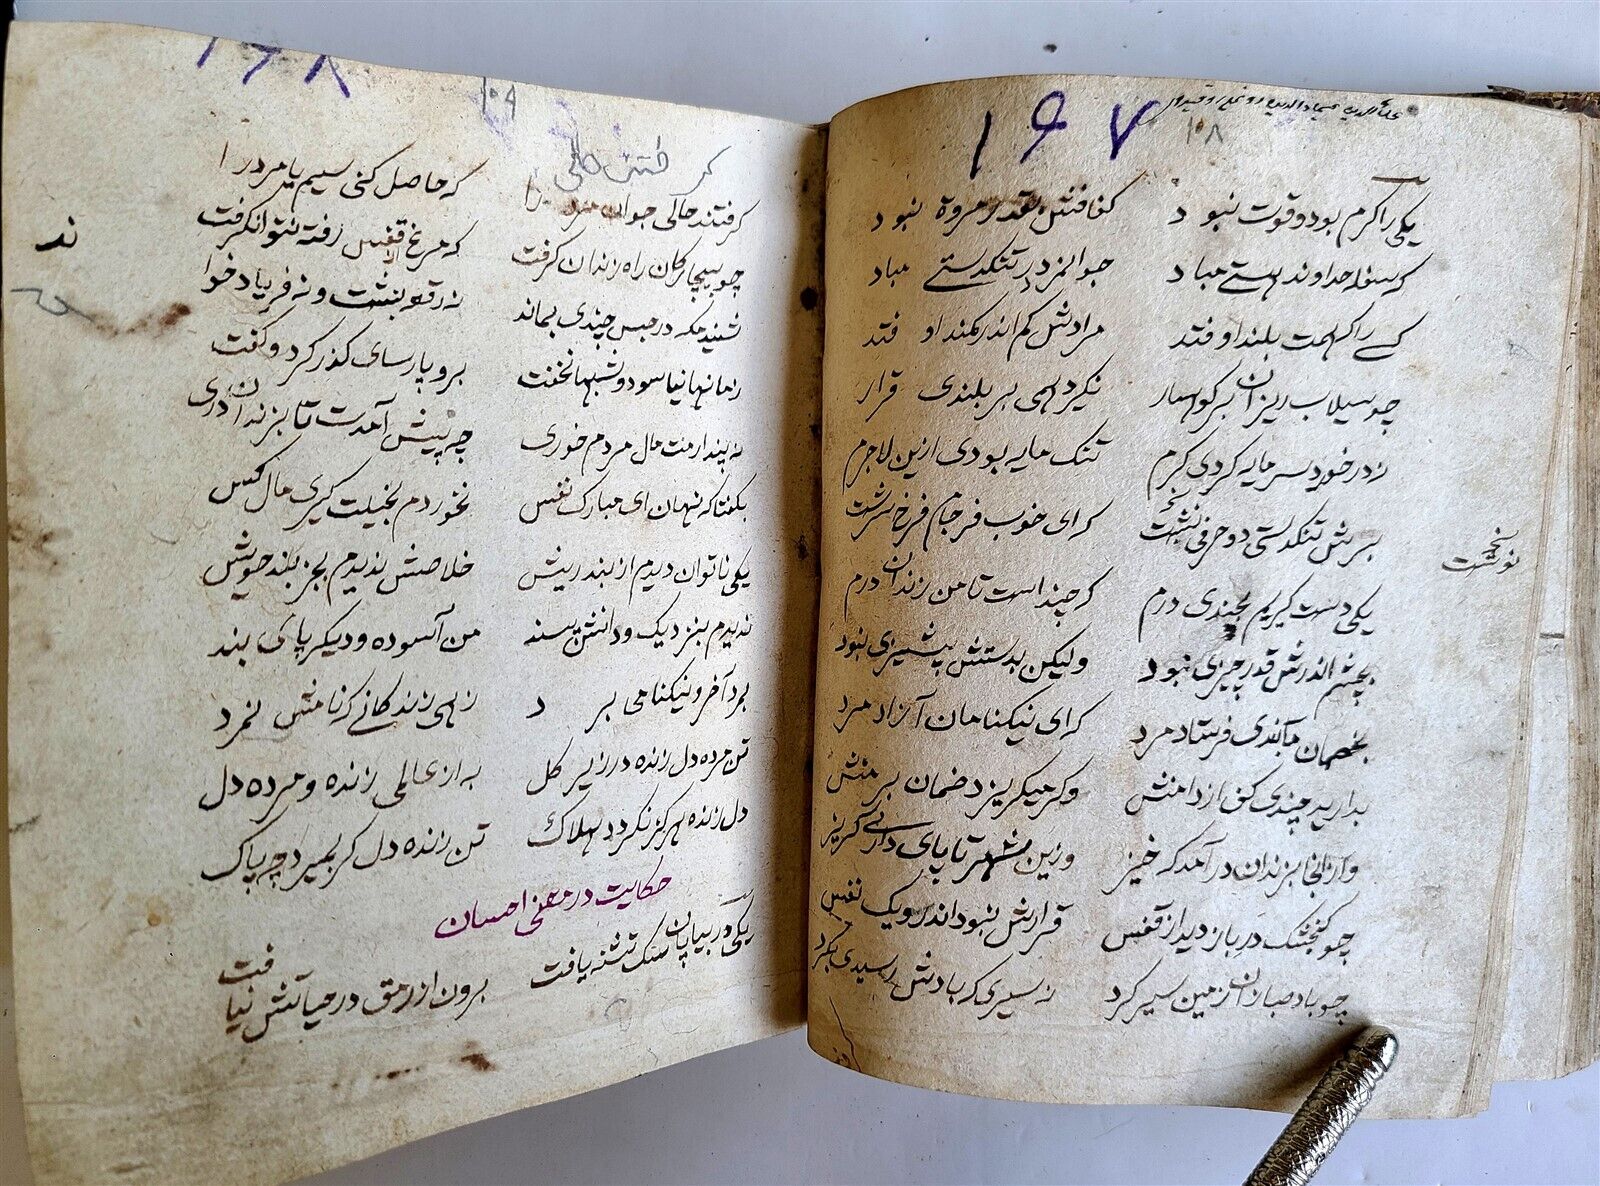 ۱۶۷
۱۰۸
یکی را کرم بود و قوت نبود کفافش بقدر مروة نبود
که سفله خداوند هستی مباد جوانمرد را تنکدستی مباد
کسی را که همت بلند اوفتد مرادش کم اندر کمند اوفتد
چو سیلاب ریزان بر کوهسار نکیرد همی بر بلندی قرار
نه در خورد سرمایه کردی کرم تنک مایه بودی ازین لاجرم
برش تنکدستی دو حرفی نبشت که ای خوب فرجام فرخ سرشت
نوشت
یکی دست کیرم بچندی درم که چند است تا من زندان درم
بچشم اندرش قدر چیزی نبود ولیکن بدستش پشیزی نبود
بخصمان بندی فرستاد مرد که ای نیکنامان آزاد مرد
بدارید چندی کف از دامنش وکر میکریزد ضمان بر منش
وز آنجا بزندان درآمد که خیز وزین شهر تا پای داری کریز
چو کنجشک در باز دید از قفس قرارش نبود اندرو یک نفس
چو باد صبا زان زمین سیر کرد نه سیری که بادش رسیدی بکرد
۱۶۸
۱۰۹
کرفتند حالی جوان مرد را که حاصل کنی سیم یا مرد را
چو بیچارکان راه زندان کرفت که مرغ از قفس رفته نتوان کرفت
ند
شنیدم که در حبس چندی بماند نه رقعه نبشت و نه فریاد خوا
زمانها نیاسود و شبها نخفت برو پارسای کذر کرد و کفت
نه پندارمت مال مردم خوری چه پیش آمدت تا بزندان دری
بکفتا که نهان ای مبارک نفس نخوردم بحیلت کری مال کس
یکی ناتوان دیدم از بند ریش خلاصش ندیدم بجز بند خویش
ندیدم بنزدیک دانش پسند من آسوده و دیکر پای بند
بمرد آخر و نیکنامی ببرد زهی زندکانی که نامش نمرد
تن مرده دل زنده در زیر کل به از عالمی زنده و مرده دل
دل زنده هرکز نکردد هلاک تن زنده دل کر بمیرد چه باک
حکایت در معنی احسان
یکی در بیابان سک تشنه یافت برون از رمق در حیاتش نیافت